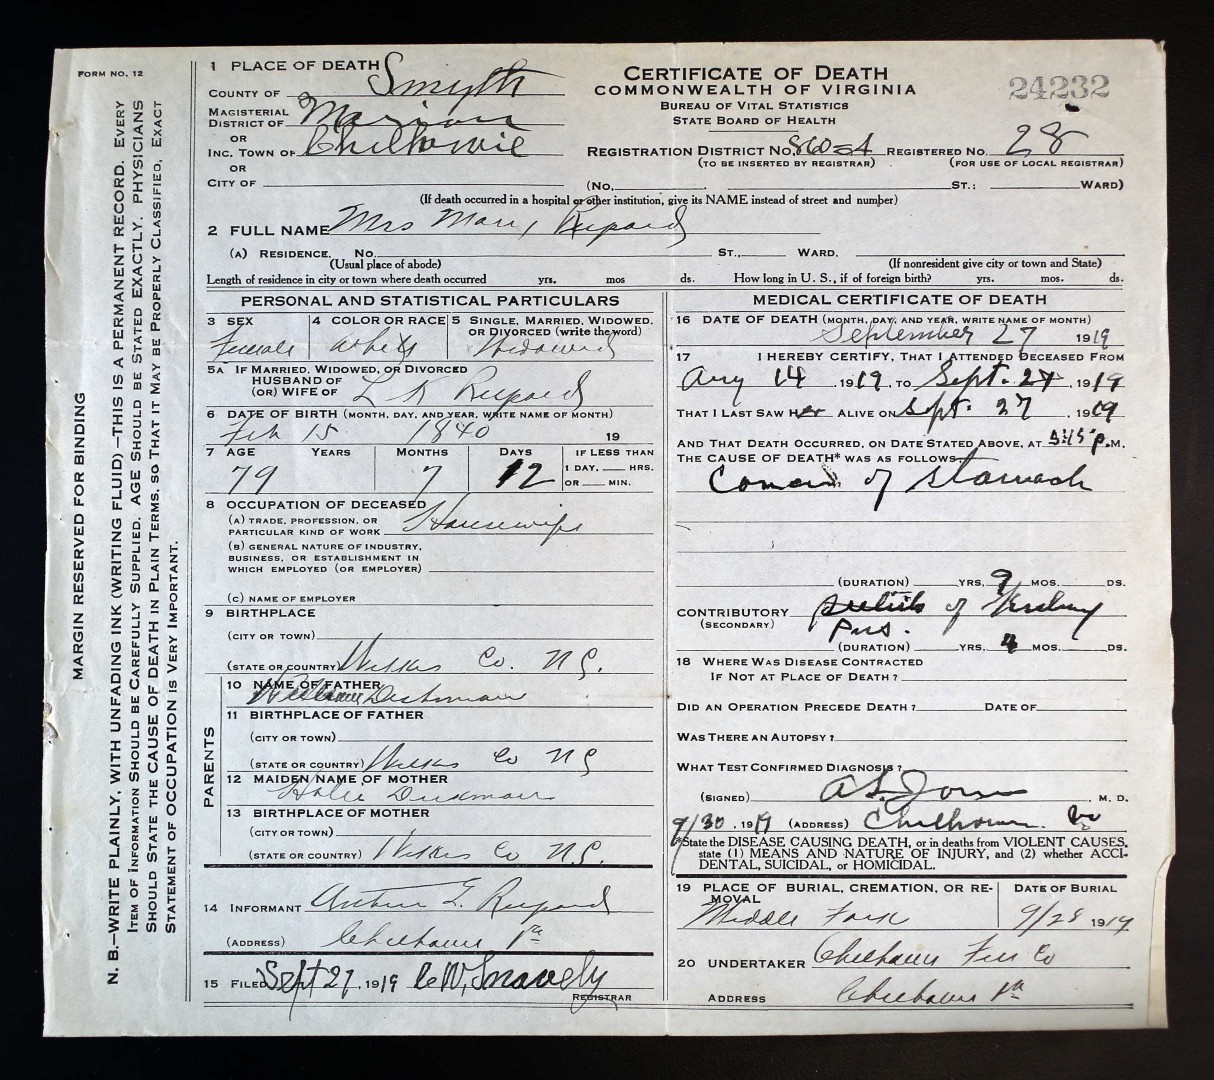 FORM NO. 12
MARGIN RESERVED FOR BINDING
N. B.—WRITE PLAINLY, WITH UNFADING INK (WRITING FLUID)—THIS IS A PERMANENT RECORD. EVERY
ITEM OF INFORMATION SHOULD BE CAREFULLY SUPPLIED. AGE SHOULD BE STATED EXACTLY. PHYSICIANS
SHOULD STATE THE CAUSE OF DEATH IN PLAIN TERMS, SO THAT IT MAY BE PROPERLY CLASSIFIED. EXACT
STATEMENT OF OCCUPATION IS VERY IMPORTANT.
1 PLACE OF DEATH
COUNTY OF Smyth
MAGISTERIAL
DISTRICT OF Marion
OR
INC. TOWN OF Chilhowie
OR
CITY OF
CERTIFICATE OF DEATH
COMMONWEALTH OF VIRGINIA
BUREAU OF VITAL STATISTICS
STATE BOARD OF HEALTH
24232
REGISTRATION DISTRICT NO. 860-A REGISTERED NO. 28
(TO BE INSERTED BY REGISTRAR) (FOR USE OF LOCAL REGISTRAR)
(No. ST.; WARD)
(If death occurred in a hospital or other institution, give its NAME instead of street and number)
2 FULL NAME Mrs Mary Reepard
(A) RESIDENCE. No. ST., WARD.
(Usual place of abode) (If nonresident give city or town and State)
Length of residence in city or town where death occurred yrs. mos ds. How long in U. S., if of foreign birth? yrs. mos. ds.
PERSONAL AND STATISTICAL PARTICULARS
3 SEX 4 COLOR OR RACE 5 SINGLE, MARRIED, WIDOWED,
OR DIVORCED (write the word)
Female White Widowed
5A IF MARRIED, WIDOWED, OR DIVORCED
HUSBAND OF
(OR) WIFE OF L K Reepard
6 DATE OF BIRTH (MONTH, DAY, AND YEAR, WRITE NAME OF MONTH)
Feb 15 1840 19
7 AGE YEARS MONTHS DAYS IF LESS THAN
1 DAY, HRS.
OR MIN.
79 7 12
8 OCCUPATION OF DECEASED
(A) TRADE, PROFESSION, OR
PARTICULAR KIND OF WORK Housewife
(B) GENERAL NATURE OF INDUSTRY,
BUSINESS, OR ESTABLISHMENT IN
WHICH EMPLOYED (OR EMPLOYER)
(C) NAME OF EMPLOYER
9 BIRTHPLACE
(CITY OR TOWN)
(STATE OR COUNTRY) Wilkes Co. N C.
PARENTS
10 NAME OF FATHER
William
11 BIRTHPLACE OF FATHER
(CITY OR TOWN)
(STATE OR COUNTRY) Wilkes Co N C
12 MAIDEN NAME OF MOTHER
13 BIRTHPLACE OF MOTHER
(CITY OR TOWN)
(STATE OR COUNTRY) Wilkes Co N.C.
14 INFORMANT Arthur G. Reepard
(ADDRESS) Chilhowie Va
15 FILED Sept 27, 1919 C W, Snavely
REGISTRAR
MEDICAL CERTIFICATE OF DEATH
16 DATE OF DEATH (MONTH, DAY, AND YEAR, WRITE NAME OF MONTH)
September 27 1919
17 I HEREBY CERTIFY, THAT I ATTENDED DECEASED FROM
Aug 14, 1919, TO Sept. 27, 1919
THAT I LAST SAW Her ALIVE ON Sept. 27, 1919
AND THAT DEATH OCCURRED, ON DATE STATED ABOVE, AT P.M.
THE CAUSE OF DEATH* WAS AS FOLLOWS:
of Stomach
(DURATION) YRS. 9 MOS. DS.
CONTRIBUTORY of
(SECONDARY)
(DURATION) YRS. 4 MOS. DS.
18 WHERE WAS DISEASE CONTRACTED
IF NOT AT PLACE OF DEATH?
DID AN OPERATION PRECEDE DEATH? DATE OF
WAS THERE AN AUTOPSY?
WHAT TEST CONFIRMED DIAGNOSIS?
(SIGNED) M. D.
9/30, 1919 (ADDRESS) Chilhowie Va
*State the DISEASE CAUSING DEATH, or in deaths from VIOLENT CAUSES,
state (1) MEANS AND NATURE OF INJURY, and (2) whether ACCI-
DENTAL, SUICIDAL, or HOMICIDAL.
19 PLACE OF BURIAL, CREMATION, OR RE-
MOVAL DATE OF BURIAL
Middle Fork 9/28 1919
20 UNDERTAKER Chilhowie Fur Co
ADDRESS Chilhowie Va